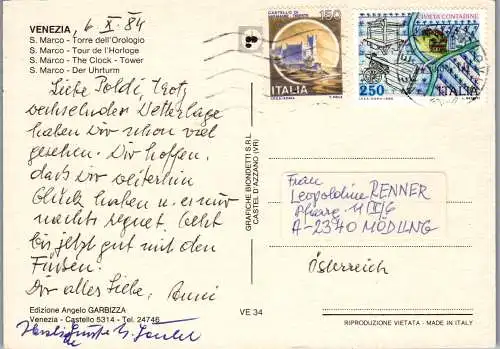 VENEZIA, 6. X. 84
S. Marco - Torre dell'Orologio
S. Marco - Tour de l'Horloge
S. Marco - The Clock - Tower
S. Marco - Der Uhrturm
Liebe Poldi, trotz
wechselnder Wetterlage
haben Wir schon viel
gesehen. Wir hoffen,
daß wir weiterhin
Glück haben u. es nur
nachts regnet. Geht
bis jetzt gut mit den
Füßen.
Dir alles Liebe,
Edizione Angelo GARBIZZA
Venezia - Castello 5314 - Tel. 24746
Herzliche Grüße
VE 34
GRAFICHE BIONDETTI S.R.L.
CASTEL D'AZZANO (VR)
CASTELLO DI
150
ITALIA
PIANETA CONTADINE
250
ITALIA
Frau
Leopoldine RENNER
11/II/6
A-2340 MÖDLING
Österreich
RIPRODUZIONE VIETATA - MADE IN ITALY